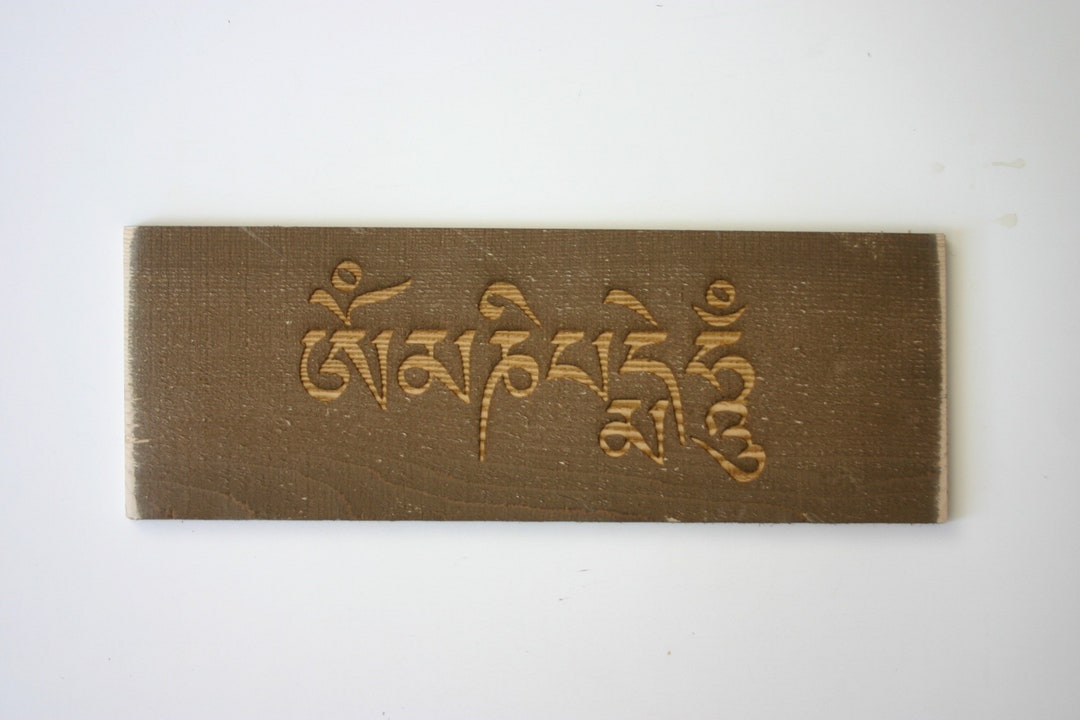 ཨོཾམཎིཔདྨེཧཱུྃ